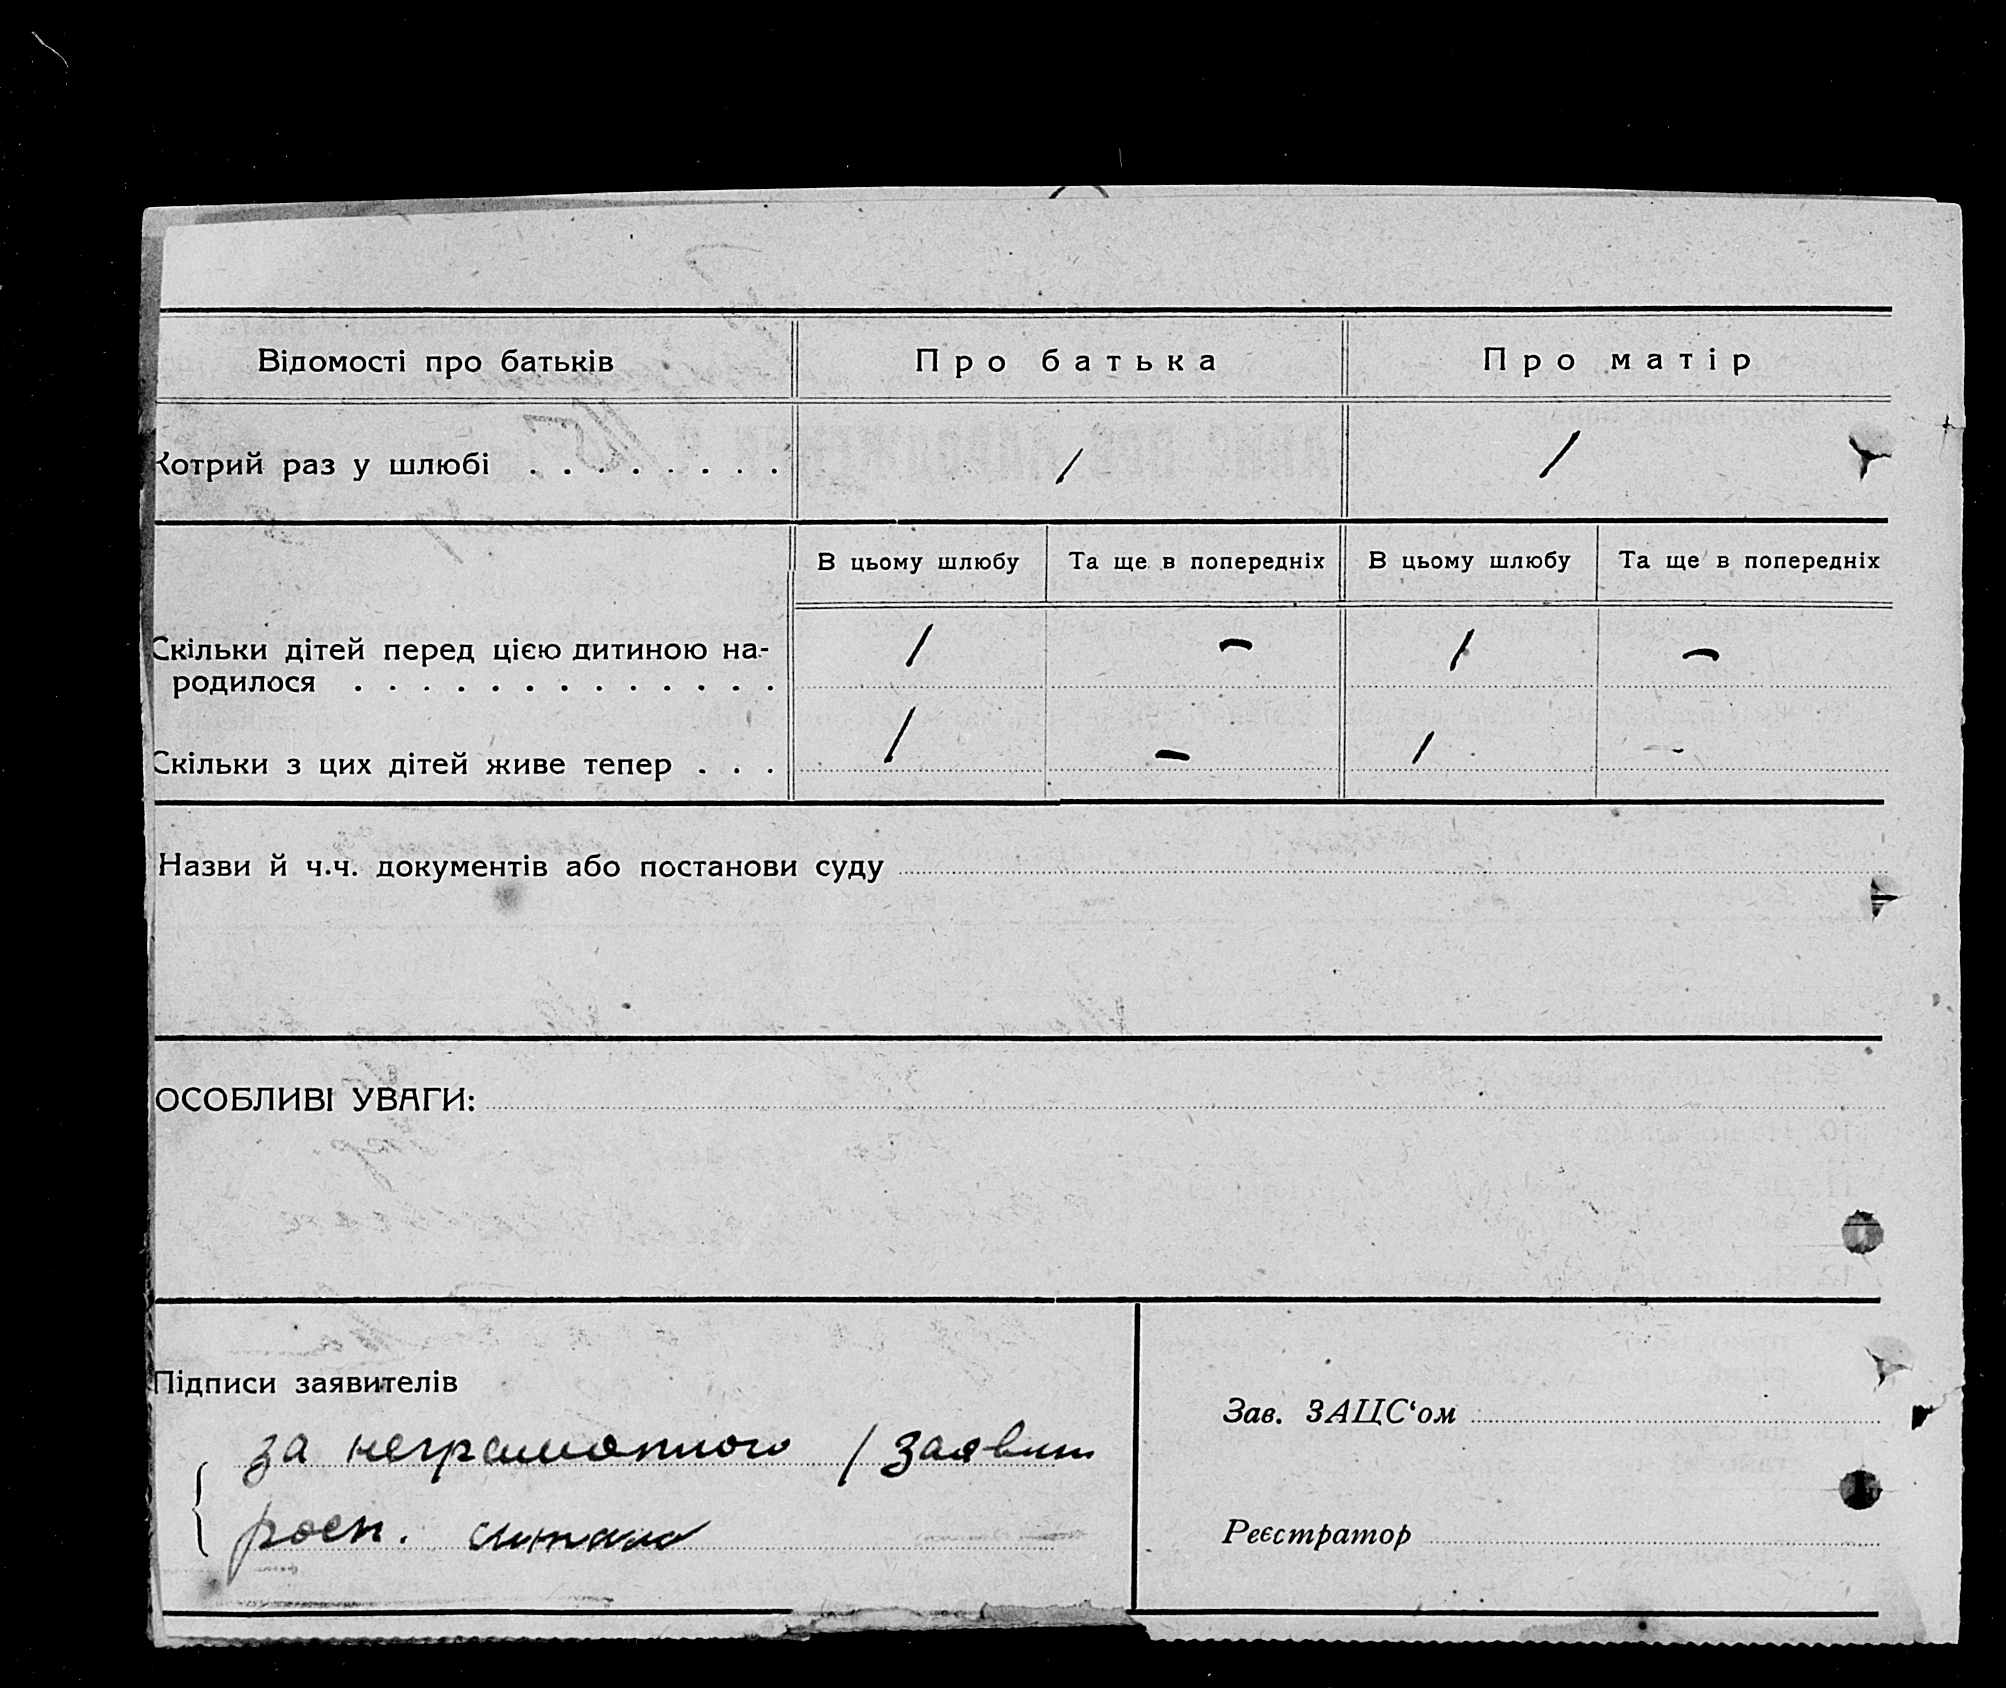 Відомості про батьків Про батька Про матір
Котрий раз у шлюбі . . . . . . . . 1 1
В цьому шлюбу Та ще в попередніх В цьому шлюбу Та ще в попередніх
Скільки дітей перед цією дитиною на- 1 — 1 —
родилося . . . . . . . . . . . . . .
Скільки з цих дітей живе тепер . . . 1 — 1 —
Назви й ч.ч. документів або постанови суду
ОСОБЛИВІ УВАГИ:
Підписи заявителів
Зав. ЗАЦС‘ом
за неграмотного / заявит
Реєстратор
росп.